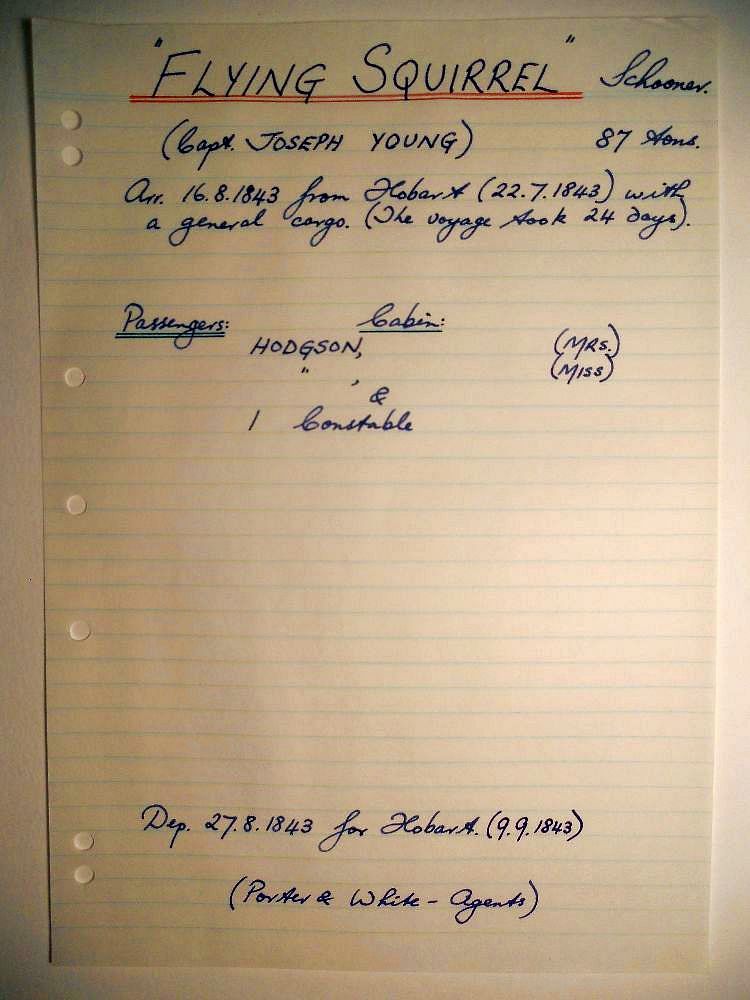 "FLYING SQUIRREL" Schooner.
(Capt. JOSEPH YOUNG) 87 tons.
Arr. 16.8.1843 from Hobart (22.7.1843) with
a general cargo. (The voyage took 24 days).
Passengers: Cabin:
HODGSON, (MRS.)
" , (MISS)
&
1 Constable
Dep. 27.8.1843 for Hobart. (9.9.1843)
(Porter & White - Agents)